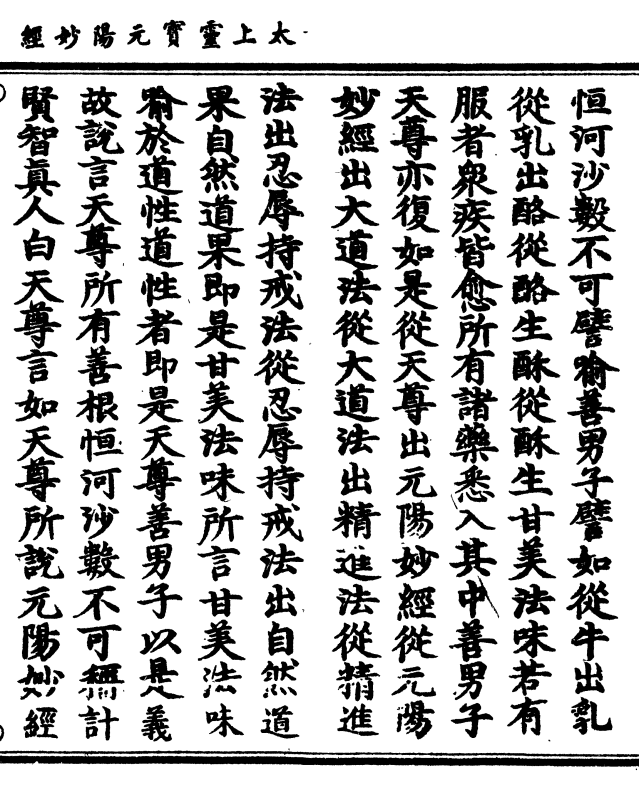 太上靈寶元陽妙經
恒河沙數不可譬喻善男子譬如從牛出乳
從乳出酪從酪生酥從酥生甘美法味若有
服者衆疾皆愈所有諸藥悉入其中善男子
天尊亦復如是從天尊出元陽妙經從元陽
妙經出大道法從大道法出精進法從精進
法出忍辱持戒法從忍辱持戒法出自然道
果自然道果即是甘美法味所言甘美法味
喻於道性道性者即是天尊善男子以是義
故說言天尊所有善根恒河沙數不可稱計
賢智真人白天尊言如天尊所說元陽妙經